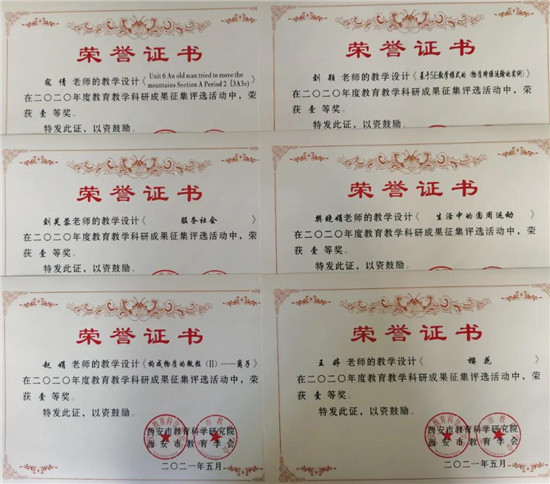 荣誉证书
寇倩 老师的教学设计《Unit 6 An old man tried to move the
mountains Section A Period 2（3A3c）》
在二〇二〇年度教育教学科研成果征集评选活动中，荣
获 壹 等奖。
特发此证，以资鼓励。
荣誉证书
刘颖 老师的教学设计《基于5E教学模式的
在二〇二〇年度教育教学科研成果征集评选活动中，荣
获 壹 等奖。
特发此证，以资鼓励。
荣誉证书
刘芙蓉老师的教学设计《 服务社会 》
在二〇二〇年度教育教学科研成果征集评选活动中，荣
获 壹 等奖。
特发此证，以资鼓励。
荣誉证书
樊晓娟老师的教学设计《 生活中的圆周运动 》
在二〇二〇年度教育教学科研成果征集评选活动中，荣
获 壹 等奖。
特发此证，以资鼓励。
荣誉证书
赵娟 老师的教学设计《构成物质的微粒（II）——离子》
在二〇二〇年度教育教学科研成果征集评选活动中，荣
获 壹 等奖。
特发此证，以资鼓励。
西安市教育科学研究院
西安市教育学会
二〇二一年五月
荣誉证书
王婷 老师的教学设计《 樱花 》
在二〇二〇年度教育教学科研成果征集评选活动中，荣
获 壹 等奖。
特发此证，以资鼓励。
西安市教育科学研究院
西安市教育学会
二〇二一年五月